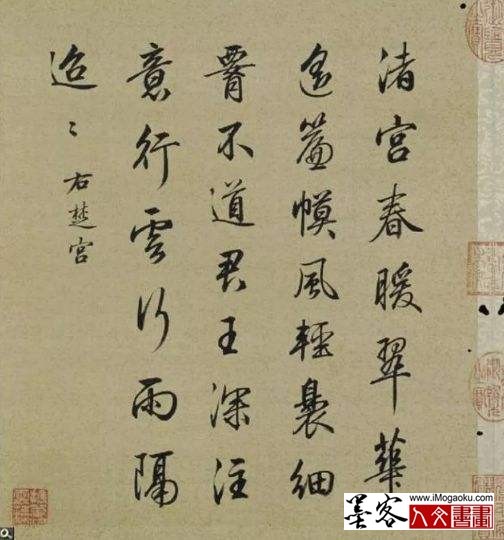 渚宮春暖翠華
遙簾幙風輕裊細
腰不道君王深注
意行雲行雨隔
迢〻
右楚宮
www.iMogaoku.com
墨客人文書畫